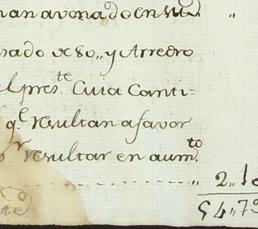 han avonado en su
sado de 80,, y Arredro
el pres.te Cuia Canti-
q.e resultan a favor
r resultar en aum.to
2,, 1
54,, 7